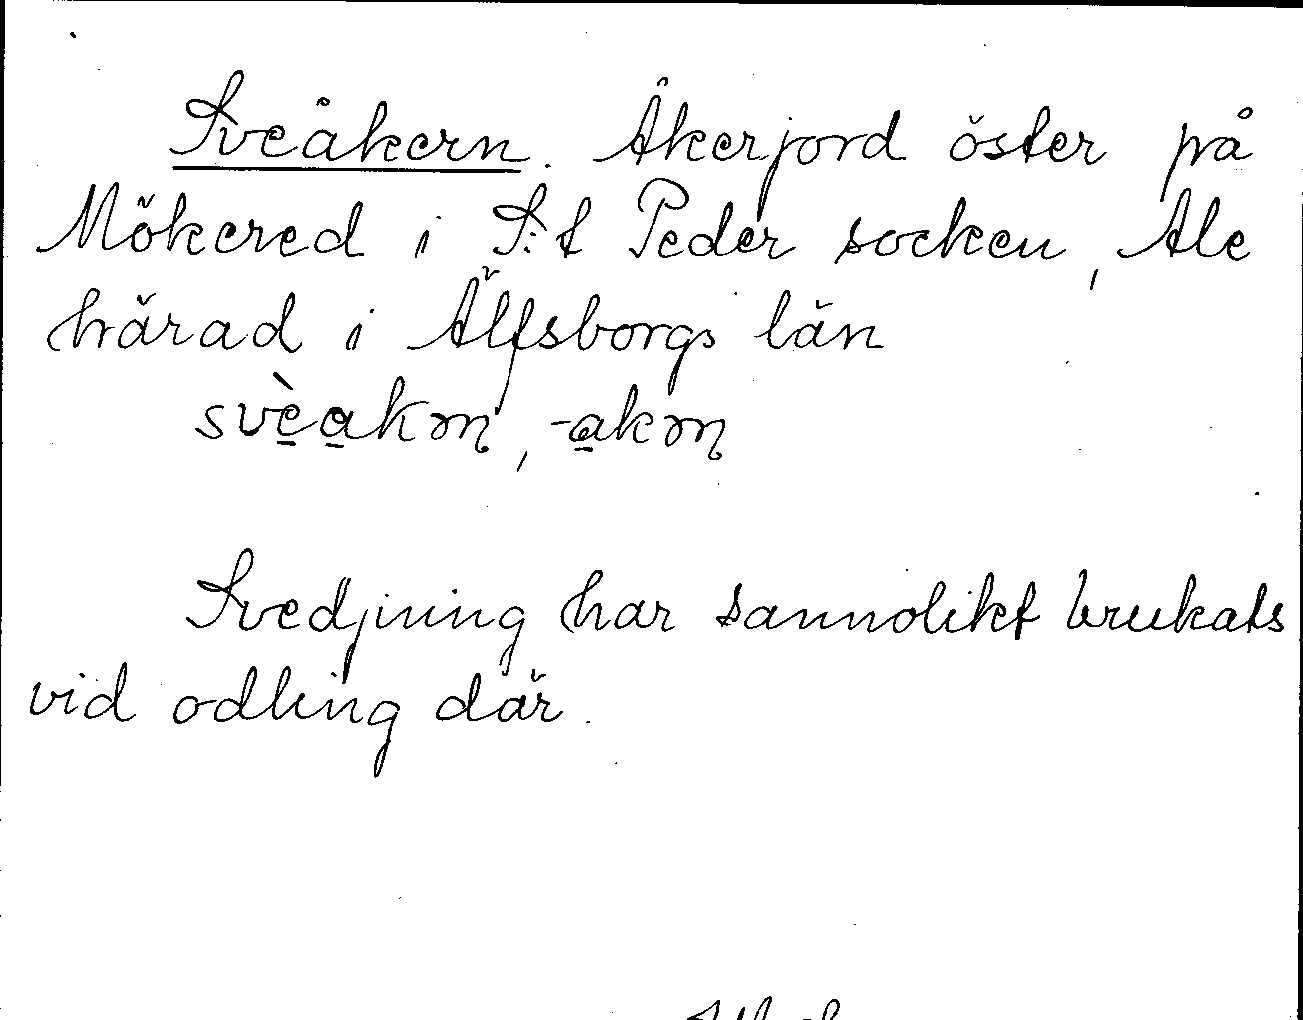 Sveåkern. Åkerjord öster på
Mökered i S:t Peder socken, Ale
härad i Älfsborgs län
svèakɷn, -akɷn
Svedjning har sannolikt brukats
vid odling där.